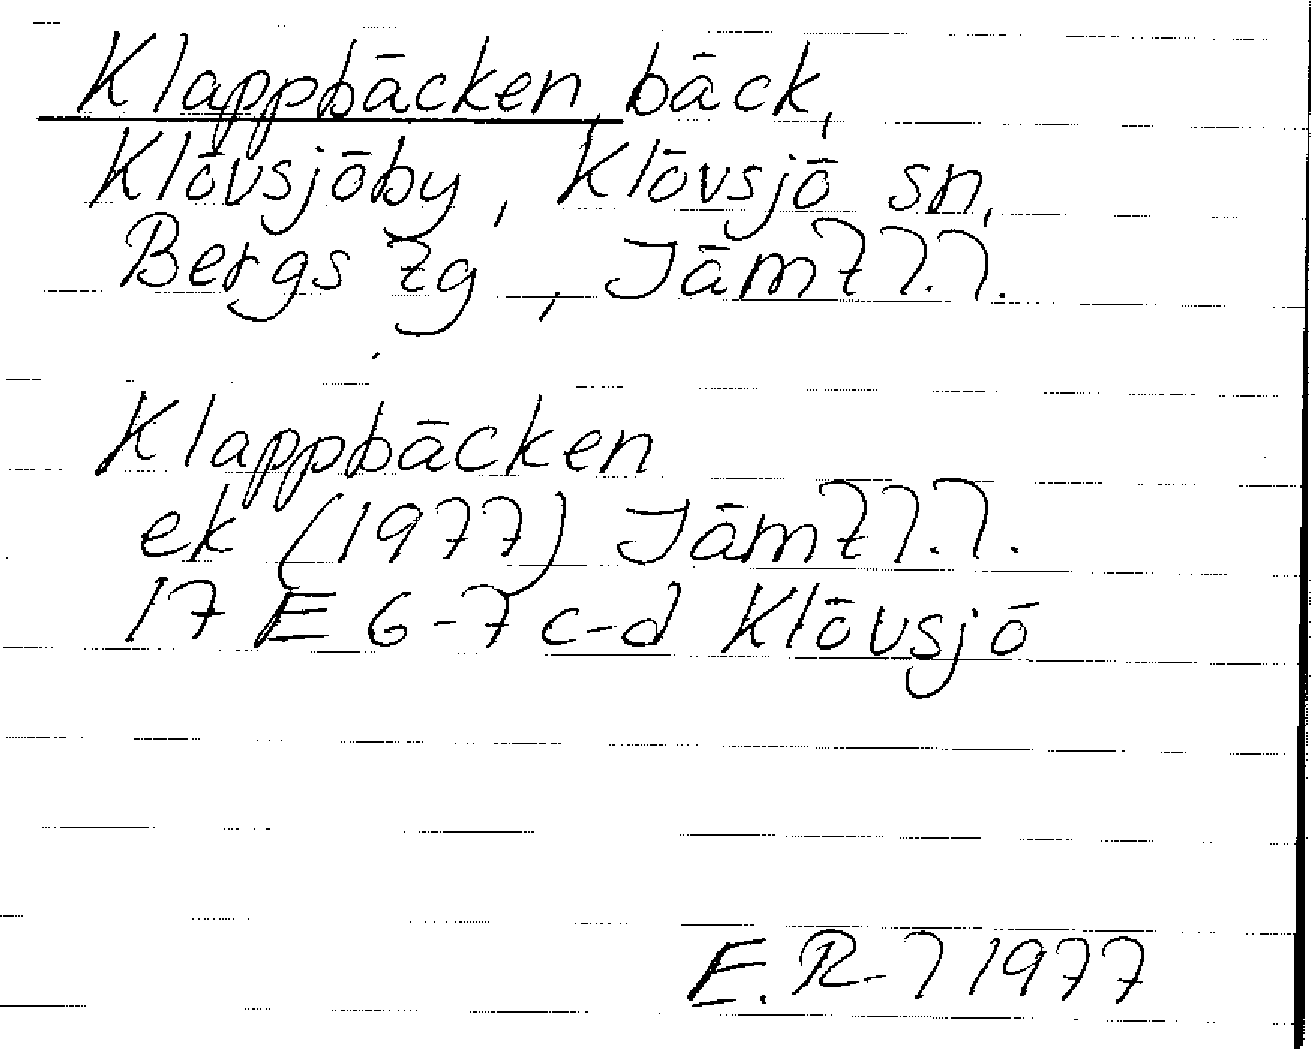 Klappbäcken, bäck,
Klövsjöby, Klövsjö sn,
Bergs tg, Jämtl.l.
Klappbäcken
ek (1977) Jämtl.l.
17 E 6-7 c-d Klövsjö
E. R-l 1977